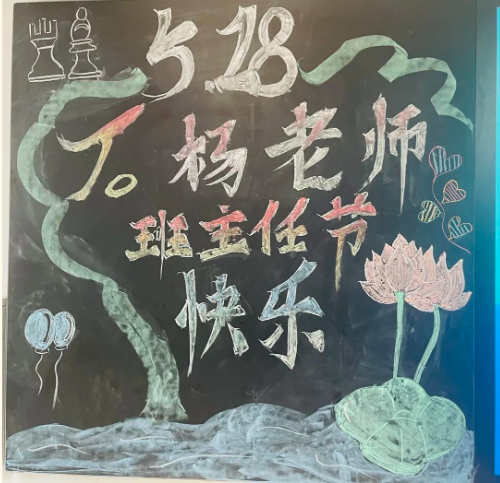 5.28
To 杨老师
班主任节
快乐